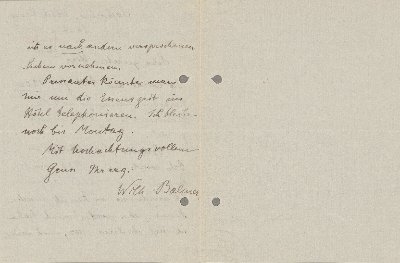 ich es nach andern versprochenen
lieben vornehmen.
Precauter könnte man
mir um die Essenszeit ins
Hôtel telephonieren. Ich bleibe
noch bis Montag.
Mit hochachtungsvollem
Gruss Ihr erg.
Wilh. Balmer